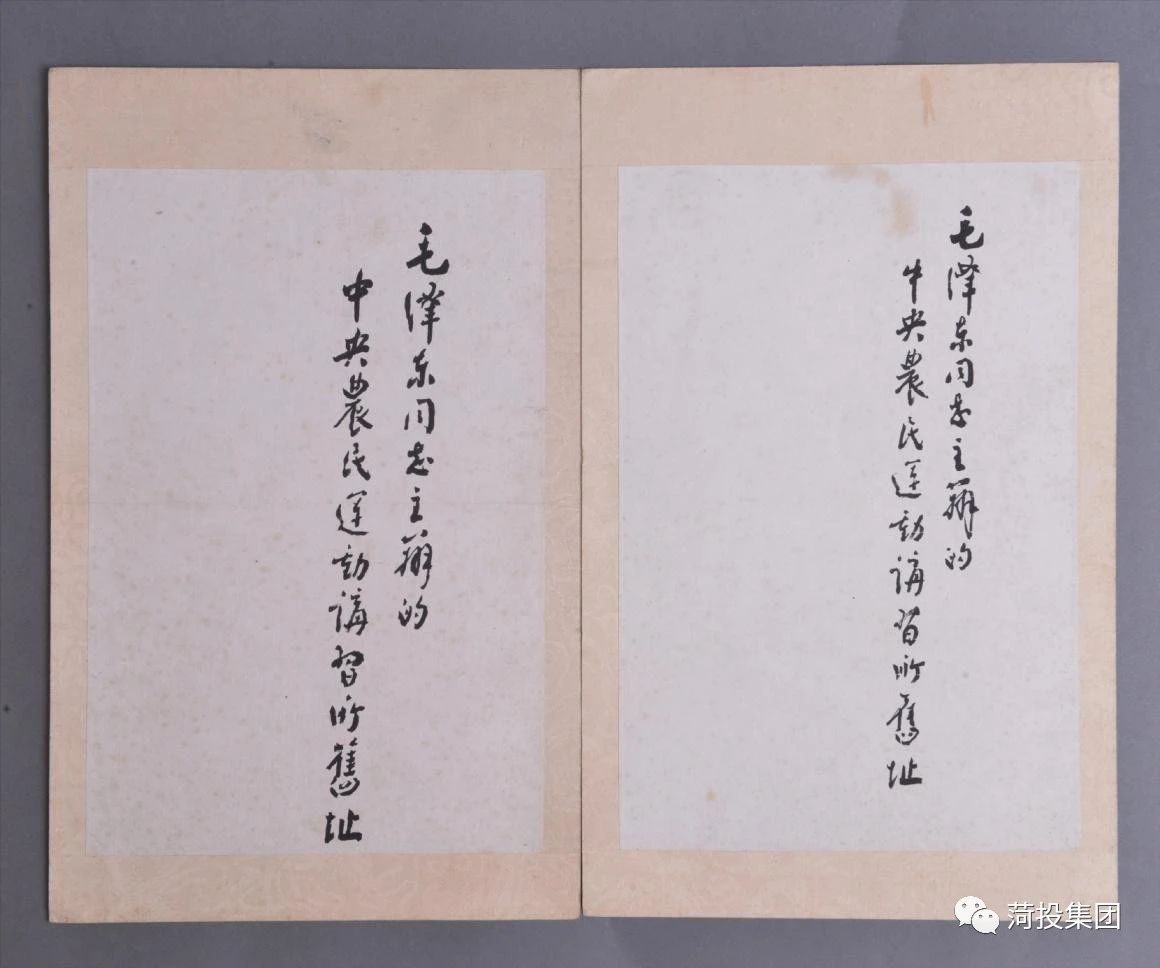 毛澤东同志主辦的
中央農民運动講習所舊址
毛澤东同志主辦的
中央農民運动講習所舊址
菏投集团